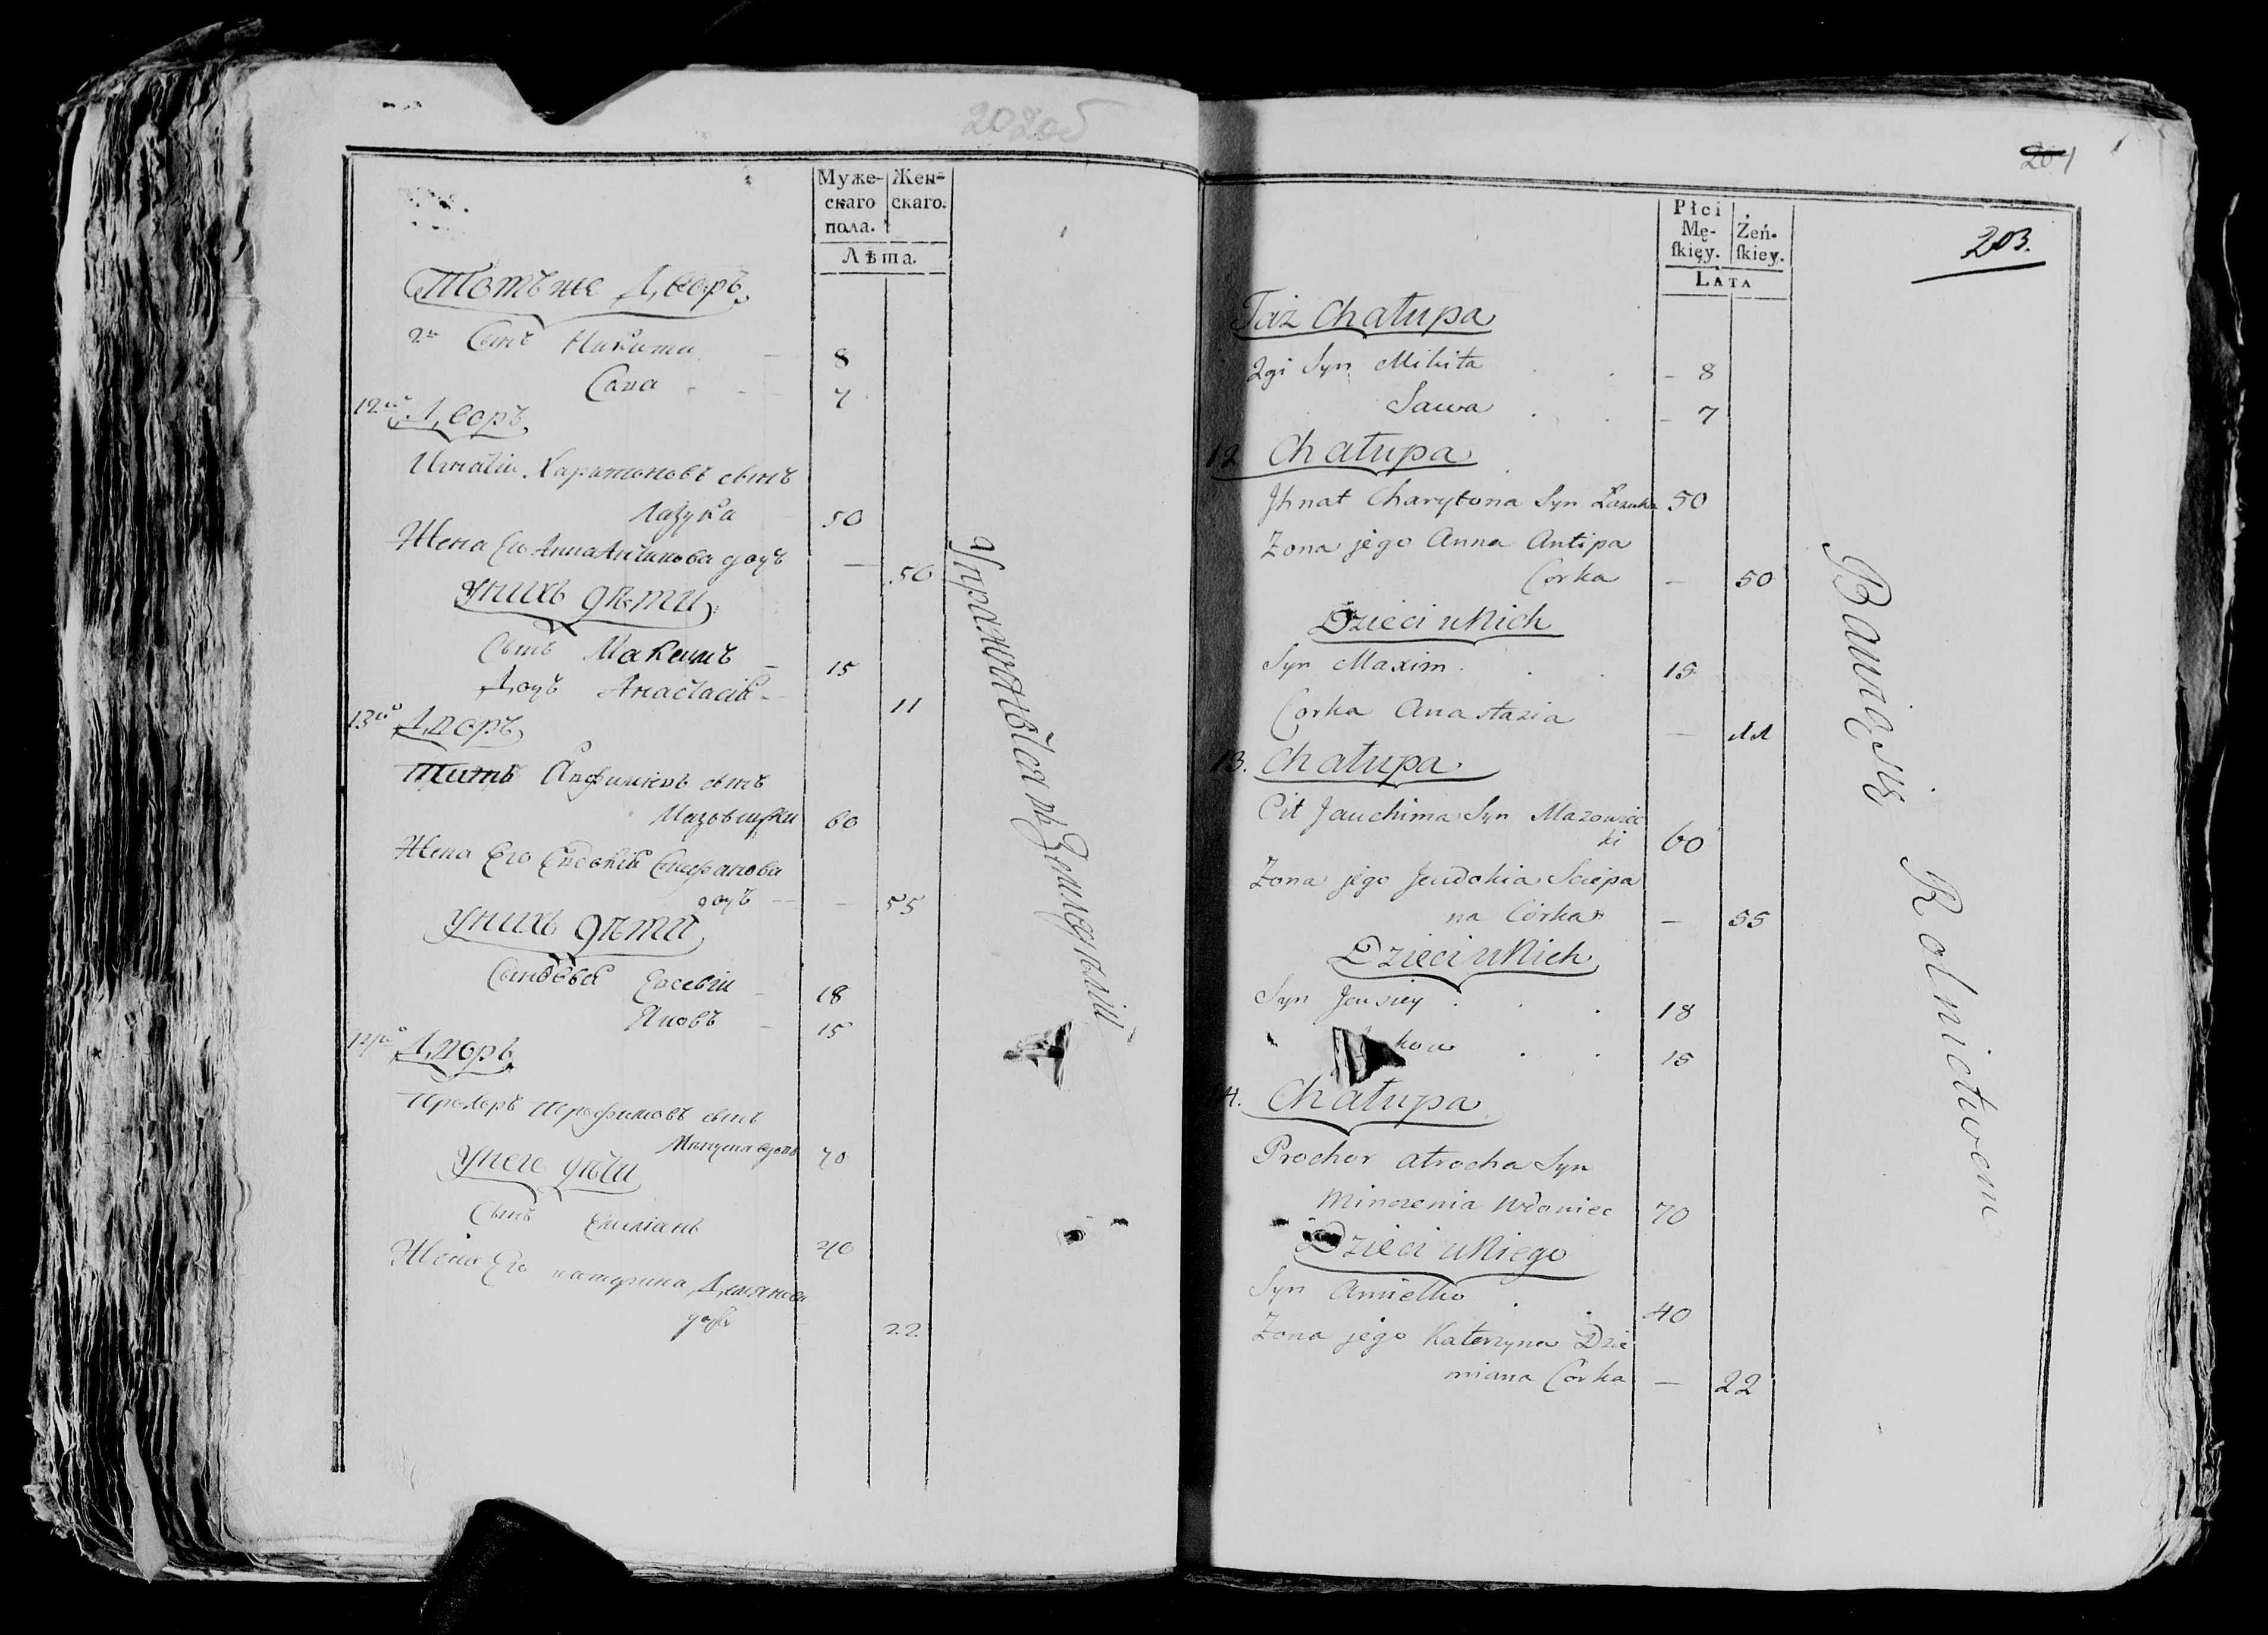 202об
Муже-
скаго
пола.
Жен-
скаго.
Лѣта.
Тотъже Дворъ
2й Сынъ Никита 8
Сава 7
12й Дворъ
Игнатiй Харитоновъ сынъ
Лазука 50
Жена Его Анна Антипова дочь — 50
Унихъ дѣти
Сынъ Максимъ 15
Дочь Анастасiя 11
13й Дворъ
Титъ сынъ
60
Жена Его Евдокiя Стефанова
дочь — 55
Унихъ дѣти
Сыновья Евсевiй 18
Яковъ 15
14й Дворъ
Прохоръ Трофимовъ сынъ
70
Унего дѣти
Сынъ Емилiанъ
40
Жена Его Катерина Демянова
дочь 22
Упражняются въ Земледѣлiи
204
203.
Płci
Mę-
ſkięy.
Żeń-
ſkiey.
LATA
Taż Chałupa
2gi Syn Mikita 8
Sawa 7
12 Chałupa
Jhnat Charytona Syn Łazuka 50
Zona jego Anna Antipa
Corka — 50
Dzieci u Nich
Syn Maxim 15
Corka Anastazia — 11
13. Chałupa
Cit Jauchima Syn Mazowiec
ki 60
Zona jego Jeudokia Sciepa
na Córka — 55
Dzieci u Nich
Syn Jeusiey 18
kow 15
4. Chałupa
Prochor Atrocha Syn
Wdowiec 70
Dzieci u Niego
Syn Amielko 40
Zona jego Katerzyna Dzie
miana Corka — 22
Bawią się Rolnictwem